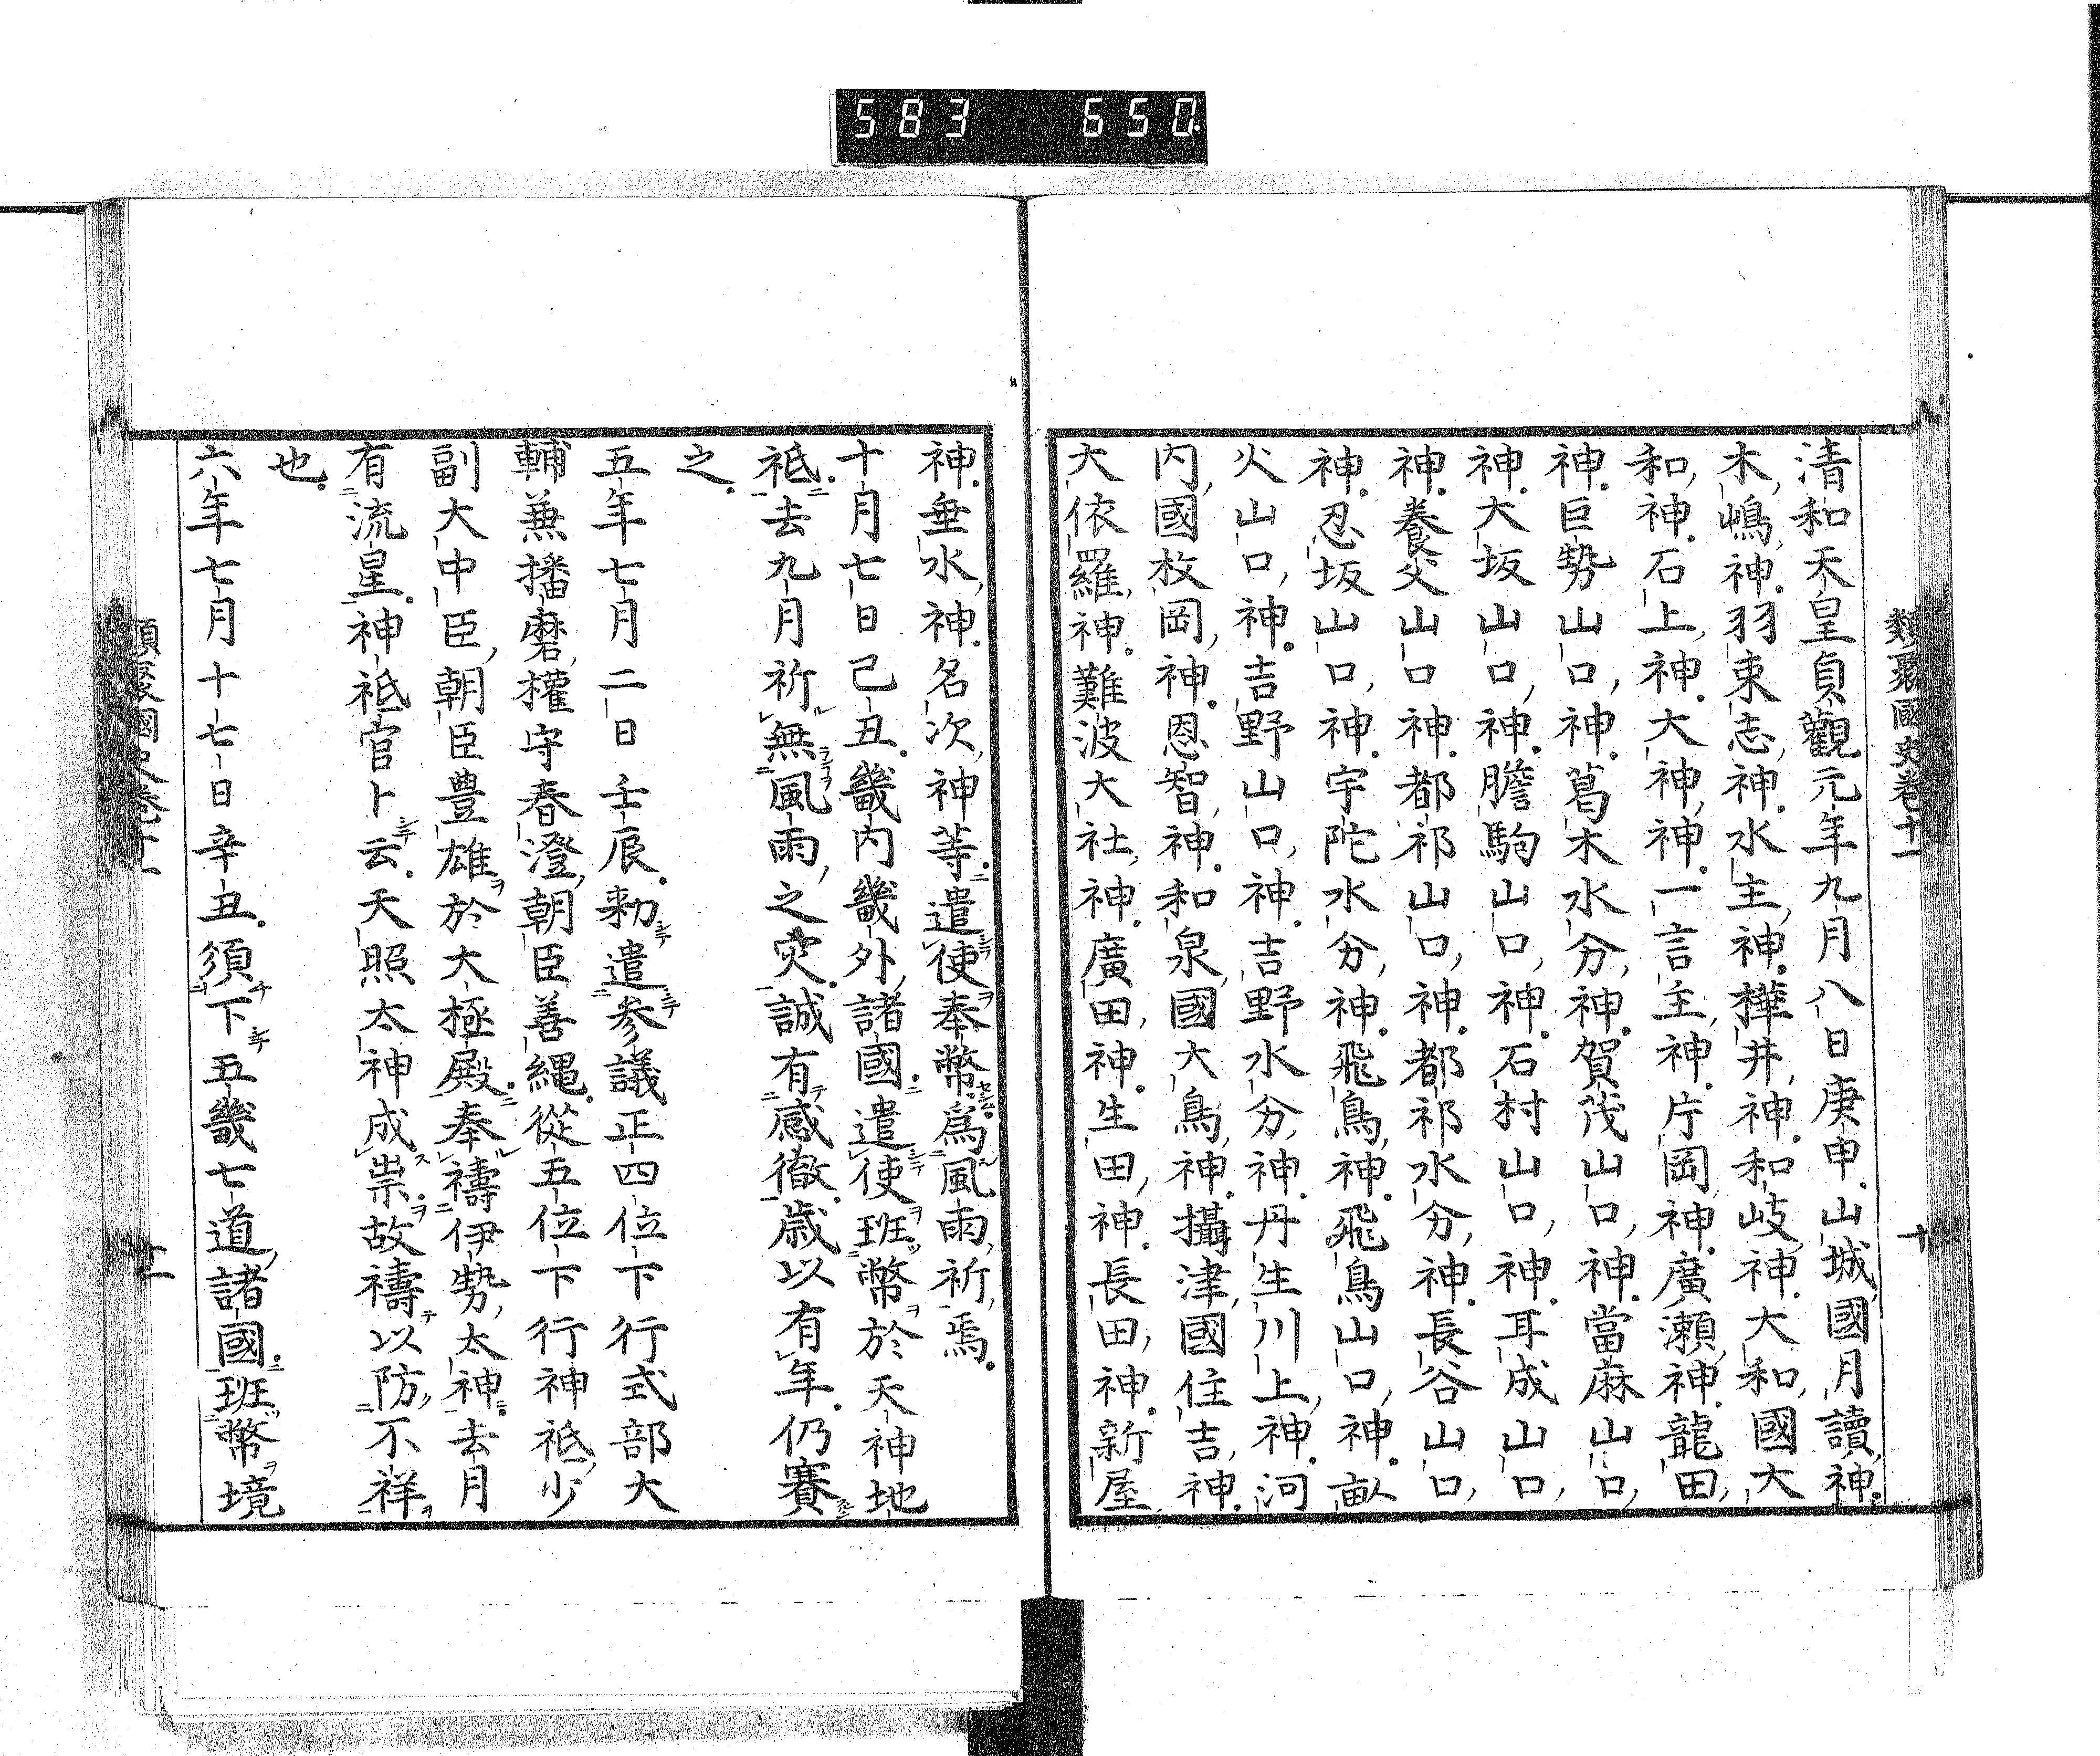 583 650
類聚國史卷十一
十
清和天皇貞觀元年九月八日庚申山城國月讀神
木嶋神羽束志神水主神樺井神和岐神大和國大
和神石上神大神神一言主神片岡神廣瀬神龍田
神巨勢山口神葛木水分神賀茂山口神當麻山口
神大坂山口神膽駒山口神石村山口神耳成山口
神養父山口神都祁山口神都祁水分神長谷山口
神忍坂山口神宇陀水分神飛鳥神飛鳥山口神畝
火山口神吉野山口神吉野水分神丹生川上神河
内國枚岡神恩智神和泉國大鳥神攝津國住吉神
大依羅神難波大社神廣田神生田神長田神新屋
神垂水神名次神等遣使奉幣爲風雨祈焉
十月七日己丑畿内畿外諸國遣使班幣於天神地
祇去九月祈無風雨之灾誠有感徹歳以有年仍賽
之
五年七月二日壬辰勑遣参議正四位下行式部大
輔兼播磨權守春澄朝臣善繩從五位下行神祇少
副大中臣朝臣豊雄於大極殿奉禱伊勢太神去月
有流星神祇官卜云天照太神成祟故禱以防不祥
也
六年七月十七日辛丑須下五畿七道諸國班幣境
類聚國史卷十一
十一